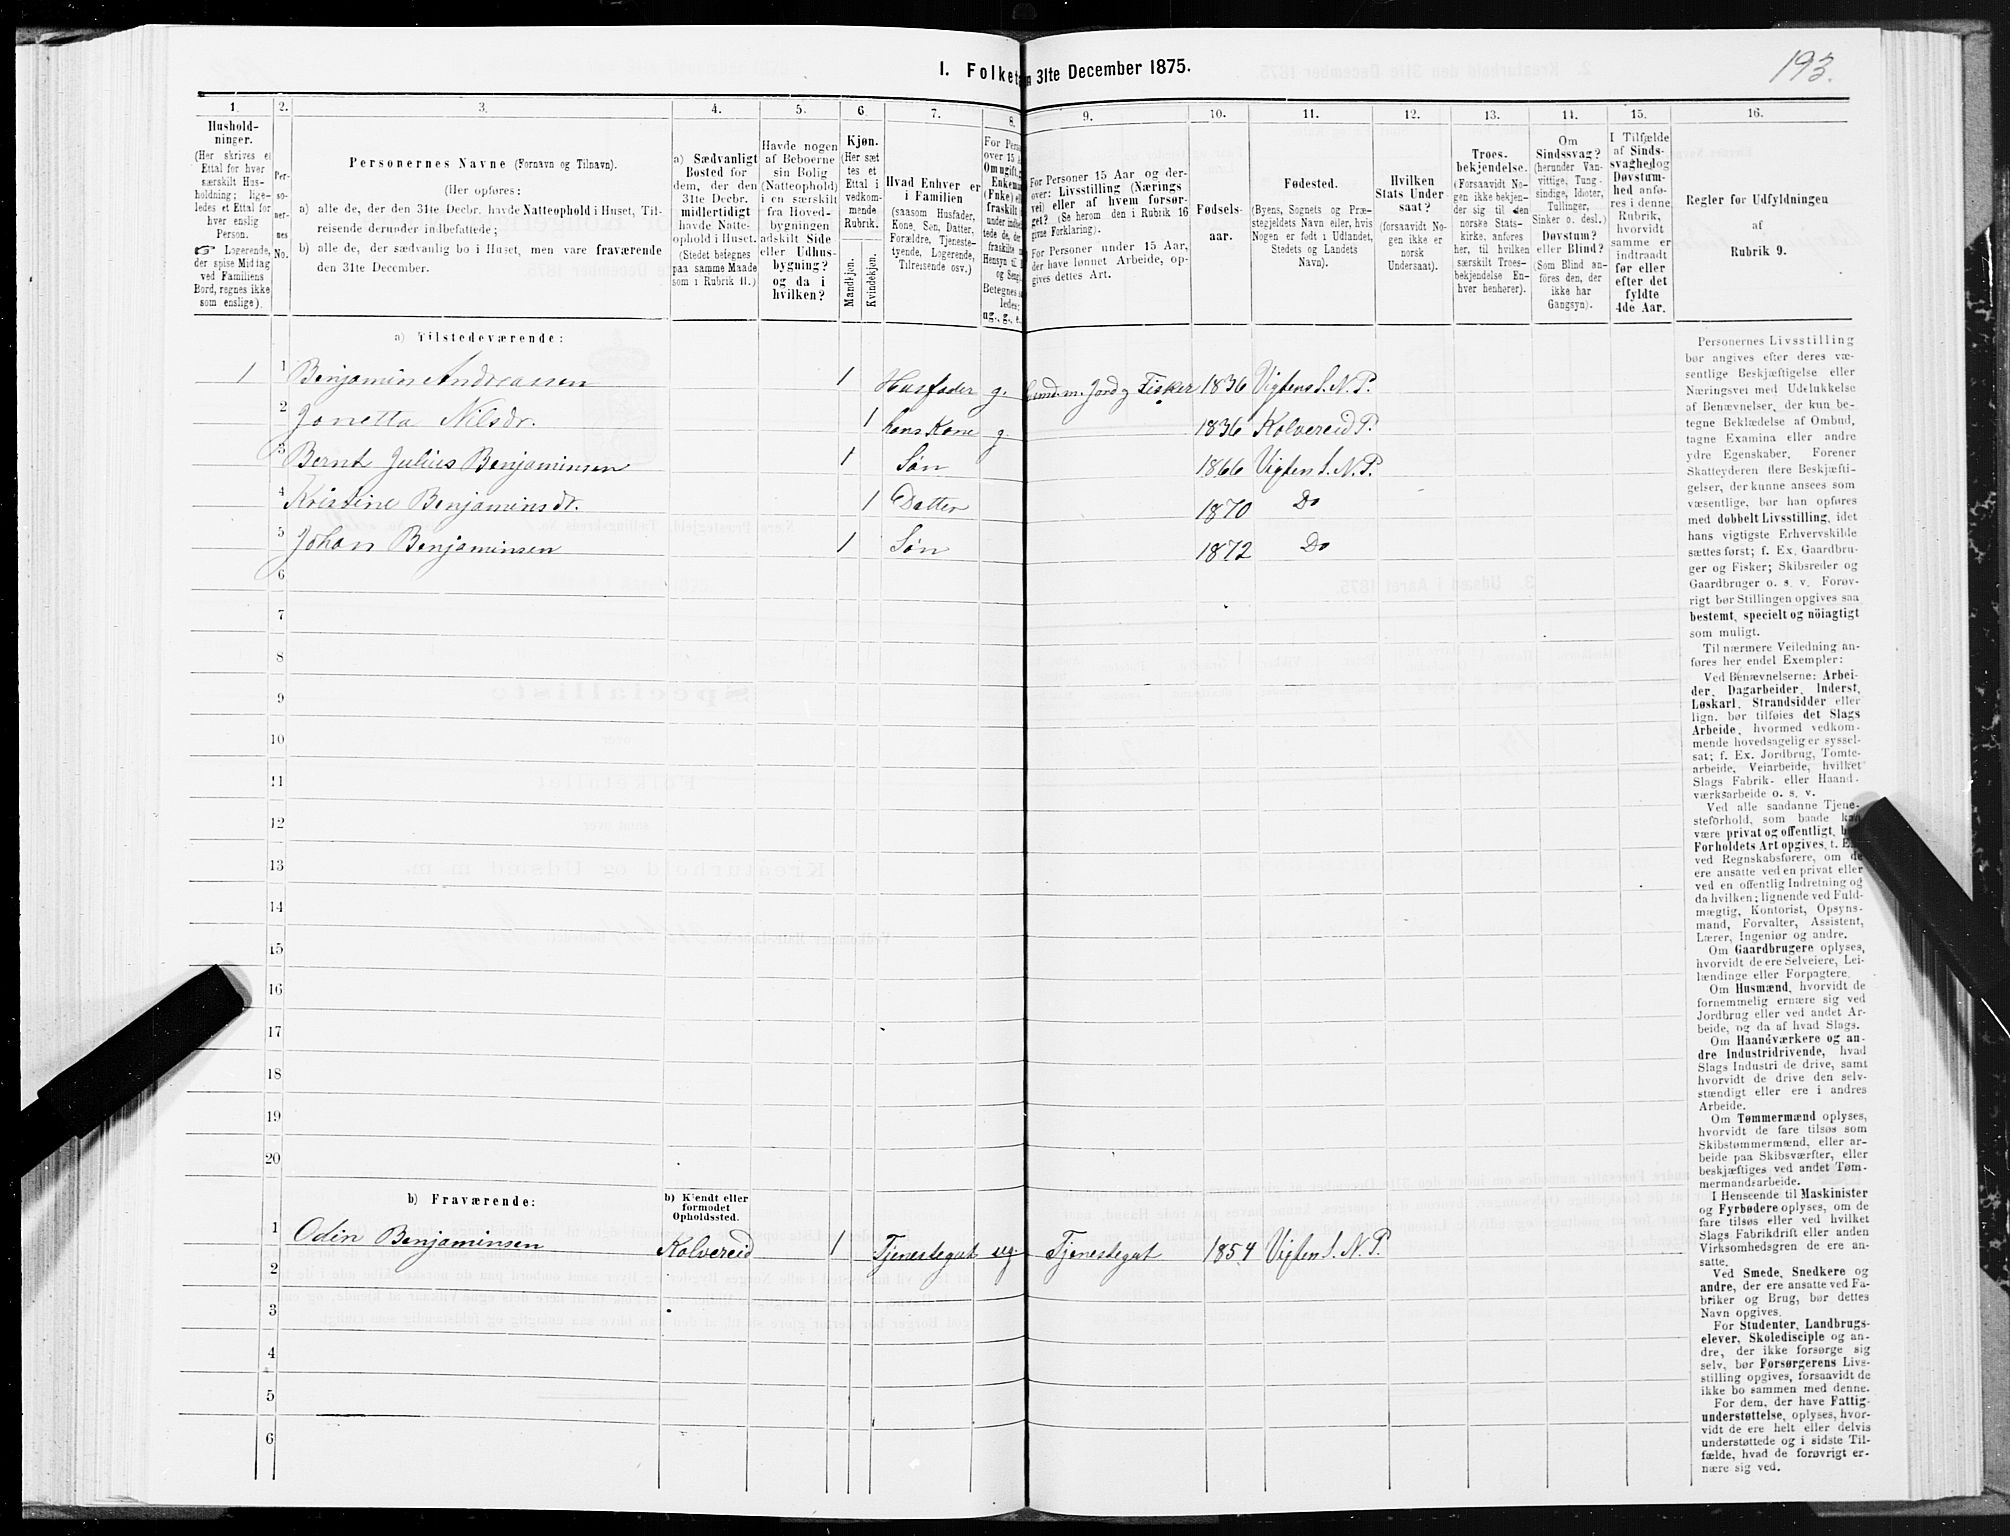 193.
I. Folketa
n 31te December 1875.
1.
2.
3.
4.
5.
6.
7.
8.
9.
10.
11.
12.
13.
14.
15.
16.
Hushold-
ninger.
(Her skrives et
Ettal for hver
særskilt Hus-
holdning; lige-
ledes et Ettal for
hver enslig
Person.
☞ Logerende,
der spise Middag
ved Familiens
Bord, regnes ikke
som enslige).
Per-
so-
ner-
nes
No.
Personernes Navne (Fornavn og Tilnavn).
(Her opføres:
a) alle de, der den 31te Decbr. havde Natteophold i Huset, Til-
reisende derunder indbefattede;
b) alle de, der sædvanlig bo i Huset, men vare fraværende
den 31te December.
a) Sædvanligt
Bosted for
dem, der den
31te Decbr.
midlertidigt
havde Natte-
ophold i Huset.
(Stedet betegnes
paa samme Maade
som i Rubrik 11.)
Havde nogen
af Beboerne
sin Bolig
(Natteophold)
i en særskilt
fra Hoved-
bygningen
adskilt Side
eller Udhus-
bygning?
og da i
hvilken?
Kjøn.
(Her sæt-
tes et
Ettal i
vedkom-
mende
Rubrik.
Mandkjøn.
Kvindekjøn.
Hvad Enhver er
i Familien
(saasom Husfader,
Kone, Søn, Datter,
Forældre, Tjeneste-
tyende, Logerende,
Tilreisende osv.)
For Pers
over 15
Om ugift,
Enkema
(Fnke)
fraskilt
Betegnes
ledes:
ug., g., e.,
For Personer 15 Aar og der-
over: Livsstilling (Nærings
veil eller af hvem forsør-
get? (Se herom den i Rubrik 16
givne Forklaring).
For Personer under 15 Aar,
der have lønnet Arbeide, op-
gives dettes Art.
Fødsels-
aar.
Fødested.
(Byens, Sognets og Præ-
stegjeldets Navn eller, hvis
Nogen er født i Udlandet,
Stedets og Landets
Navn).
Hvilken
Stats Under
saat?
(forsaavidt No-
gen ikke er
norsk
Undersaat).
Troes-
bekjendelse.
(Forsaavidt No-
gen ikke bekjen-
der sig til den
norske Stats-
kirke, anføres
her, til hvilken
særskilt Troes-
bekjendelse En-
hver henhører).
Om
Sindssvag?
(herunder Van-
vittige, Tung-
sindige, Idioter,
Tullinger,
Sinker o. desl.)
Døvstum?
eller Blind?
(Som Blind an-
føres den, der
ikke har
Gangsyn).
I Tilfælde
af Sinds-
svaghed og
Døvstum-
hed anfø-
res i denne
Rubrik,
hvorvidt
samme er
indtraadt
før eller
efter det
fyldte
4de Aar.
Regler for Udfyldningen
af
Rubrik 9.
a) Tilstedeværende:
1 1 Benjamin Andreassen 1 Husfader g. m. Jord g Fisker 1836 Vigtens S. N. P.
2 Jonetta Nilsdr. 1 hans Kone g 1836 Kolvereid P.
3 Bernt Julius Benjaminsen 1 Søn 1866 Vigten S. N. P.
4 Kristine Benjaminsdr. 1 Datter 1870 Do
5 Johan Benjaminsen 1 Søn 1872 Do
6
7
8
9
10
11
12
13
14
15
16
17
18
19
20
b) Fraværende:
b) Kjendt eller
formodet
Opholdssted.
1 Odin Benjaminsen Kolvereid 1 Tjenestegut ug. Tjenestegut 1854 Vigten S. N. P.
2
3
4
5
6
Personernes Livsstilling
bør angives efter deres væ-
sentlige Beskjæftigelse eller
Næringsvei med Udelukkelse
af Benævnelser, der kun be-
tegne Beklædelse af Ombud,
tagne Examina eller andre
ydre Egenskaber. Forener
Skatteyderen flere Beskjæfti-
gelser, der kunne ansees som
væsentlige, bør han opføres
med dobbelt Livsstilling, idet
hans vigtigste Erhvervskilde
sættes først; f. Ex. Gaardbru-
ger og Fisker; Skibsreder og
Gaardbruger o. s. v. Forøv-
rigt bør Stillingen opgives saa
bestemt, specielt og nöiagtigt
som muligt.
Til nærmere Veiledning an-
føres her endel Exempler:
Ved Benævnelserne: Arbei-
der, Dagarbeider, Inderst,
Løskarl, Strandsidder eller
lign. bør tilføies det Slags
Arbeide, hvormed vedkom-
mende hovedsagelig er syssel-
sat; f. Ex. Jordbrug, Tomte-
arbeide, Veiarbeide, hvilket
Slags Fabrik- eller Haand-
værksarbeide o. s. v.
Ved alle saadanne Tjene-
steforhold, som baade kan
være privat og offentligt, b
Forholdets Art opgives, t. E
ved Regnskabsførere, om de
ere ansatte ved en privat eller
ved en offentlig Indretning og
da hvilken; lignende ved Fuld-
mægtig, Kontorist, Opsyns-
mand, Forvalter, Assistent,
Lærer, Ingeniør og andre.
Om Gaardbrugere oplyses,
hvorvidt de ere Selveiere, Lei-
lændinge eller Forpagtere.
Om Husmænd, hvorvidt de
fornemmelig ernære sig ved
Jordbrug eller ved andet Ar-
beide, og da af hvad Slags.
Om Haandværkere og an-
dre Industridrivende, hvad
Slags Industri de drive, samt
hvorvidt de drive den selv-
stændigt eller ere i andres
Arbeide.
Om Tømmermænd oplyses,
hvorvidt de fare tilsøs som
Skibstømmermænd, eller ar-
beide paa Skibsværfter, eller
beskjæftiges ved andet Tøm-
mermandsarbeide.
I Henseende til Maskinister
og Fyrbødere oplyses, om de
fare tilsøs eller ved hvilket
Slags Fabrikdrift eller anden
Virksomhedsgren de ere an-
satte.
Ved Smede, Snedkere og
andre, der ere ansatte ved Fa-
briker og Brug, bør dettes
Navn opgives.
For Studenter, Landbrugs-
elever, Skoledisciple og an-
dre, der ikke forsørge sig
selv, bør Forsørgerens Livs-
stilling opgives, forsaavidt de
ikke bo sammen med denne.
For dem, der have Fattig-
understøttelse, oplyses, hvor-
vidt de ere helt eller delvis
understøttede og i sidste Til-
fælde, hvad de forøvrigt er-
nære sig ved.